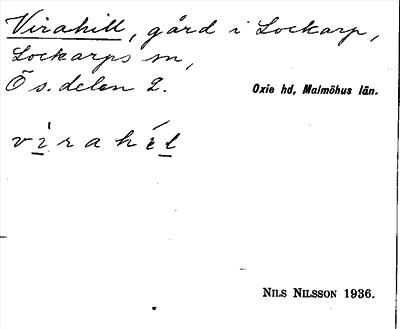 Virahill, gård i Lockarp,
Lockarps sn,
Ö s. delen 2.
Oxie hd, Malmöhus län.
v ì̱ r a h í̱ ḻ
NILS NILSSON 1936.